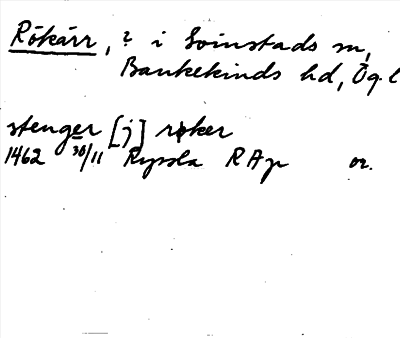 Rökärr, ? i Svinstads sn,
Bankekinds hd, Ög. l
stenger [j] røker
1462 30/11 Ryssla RAp or.